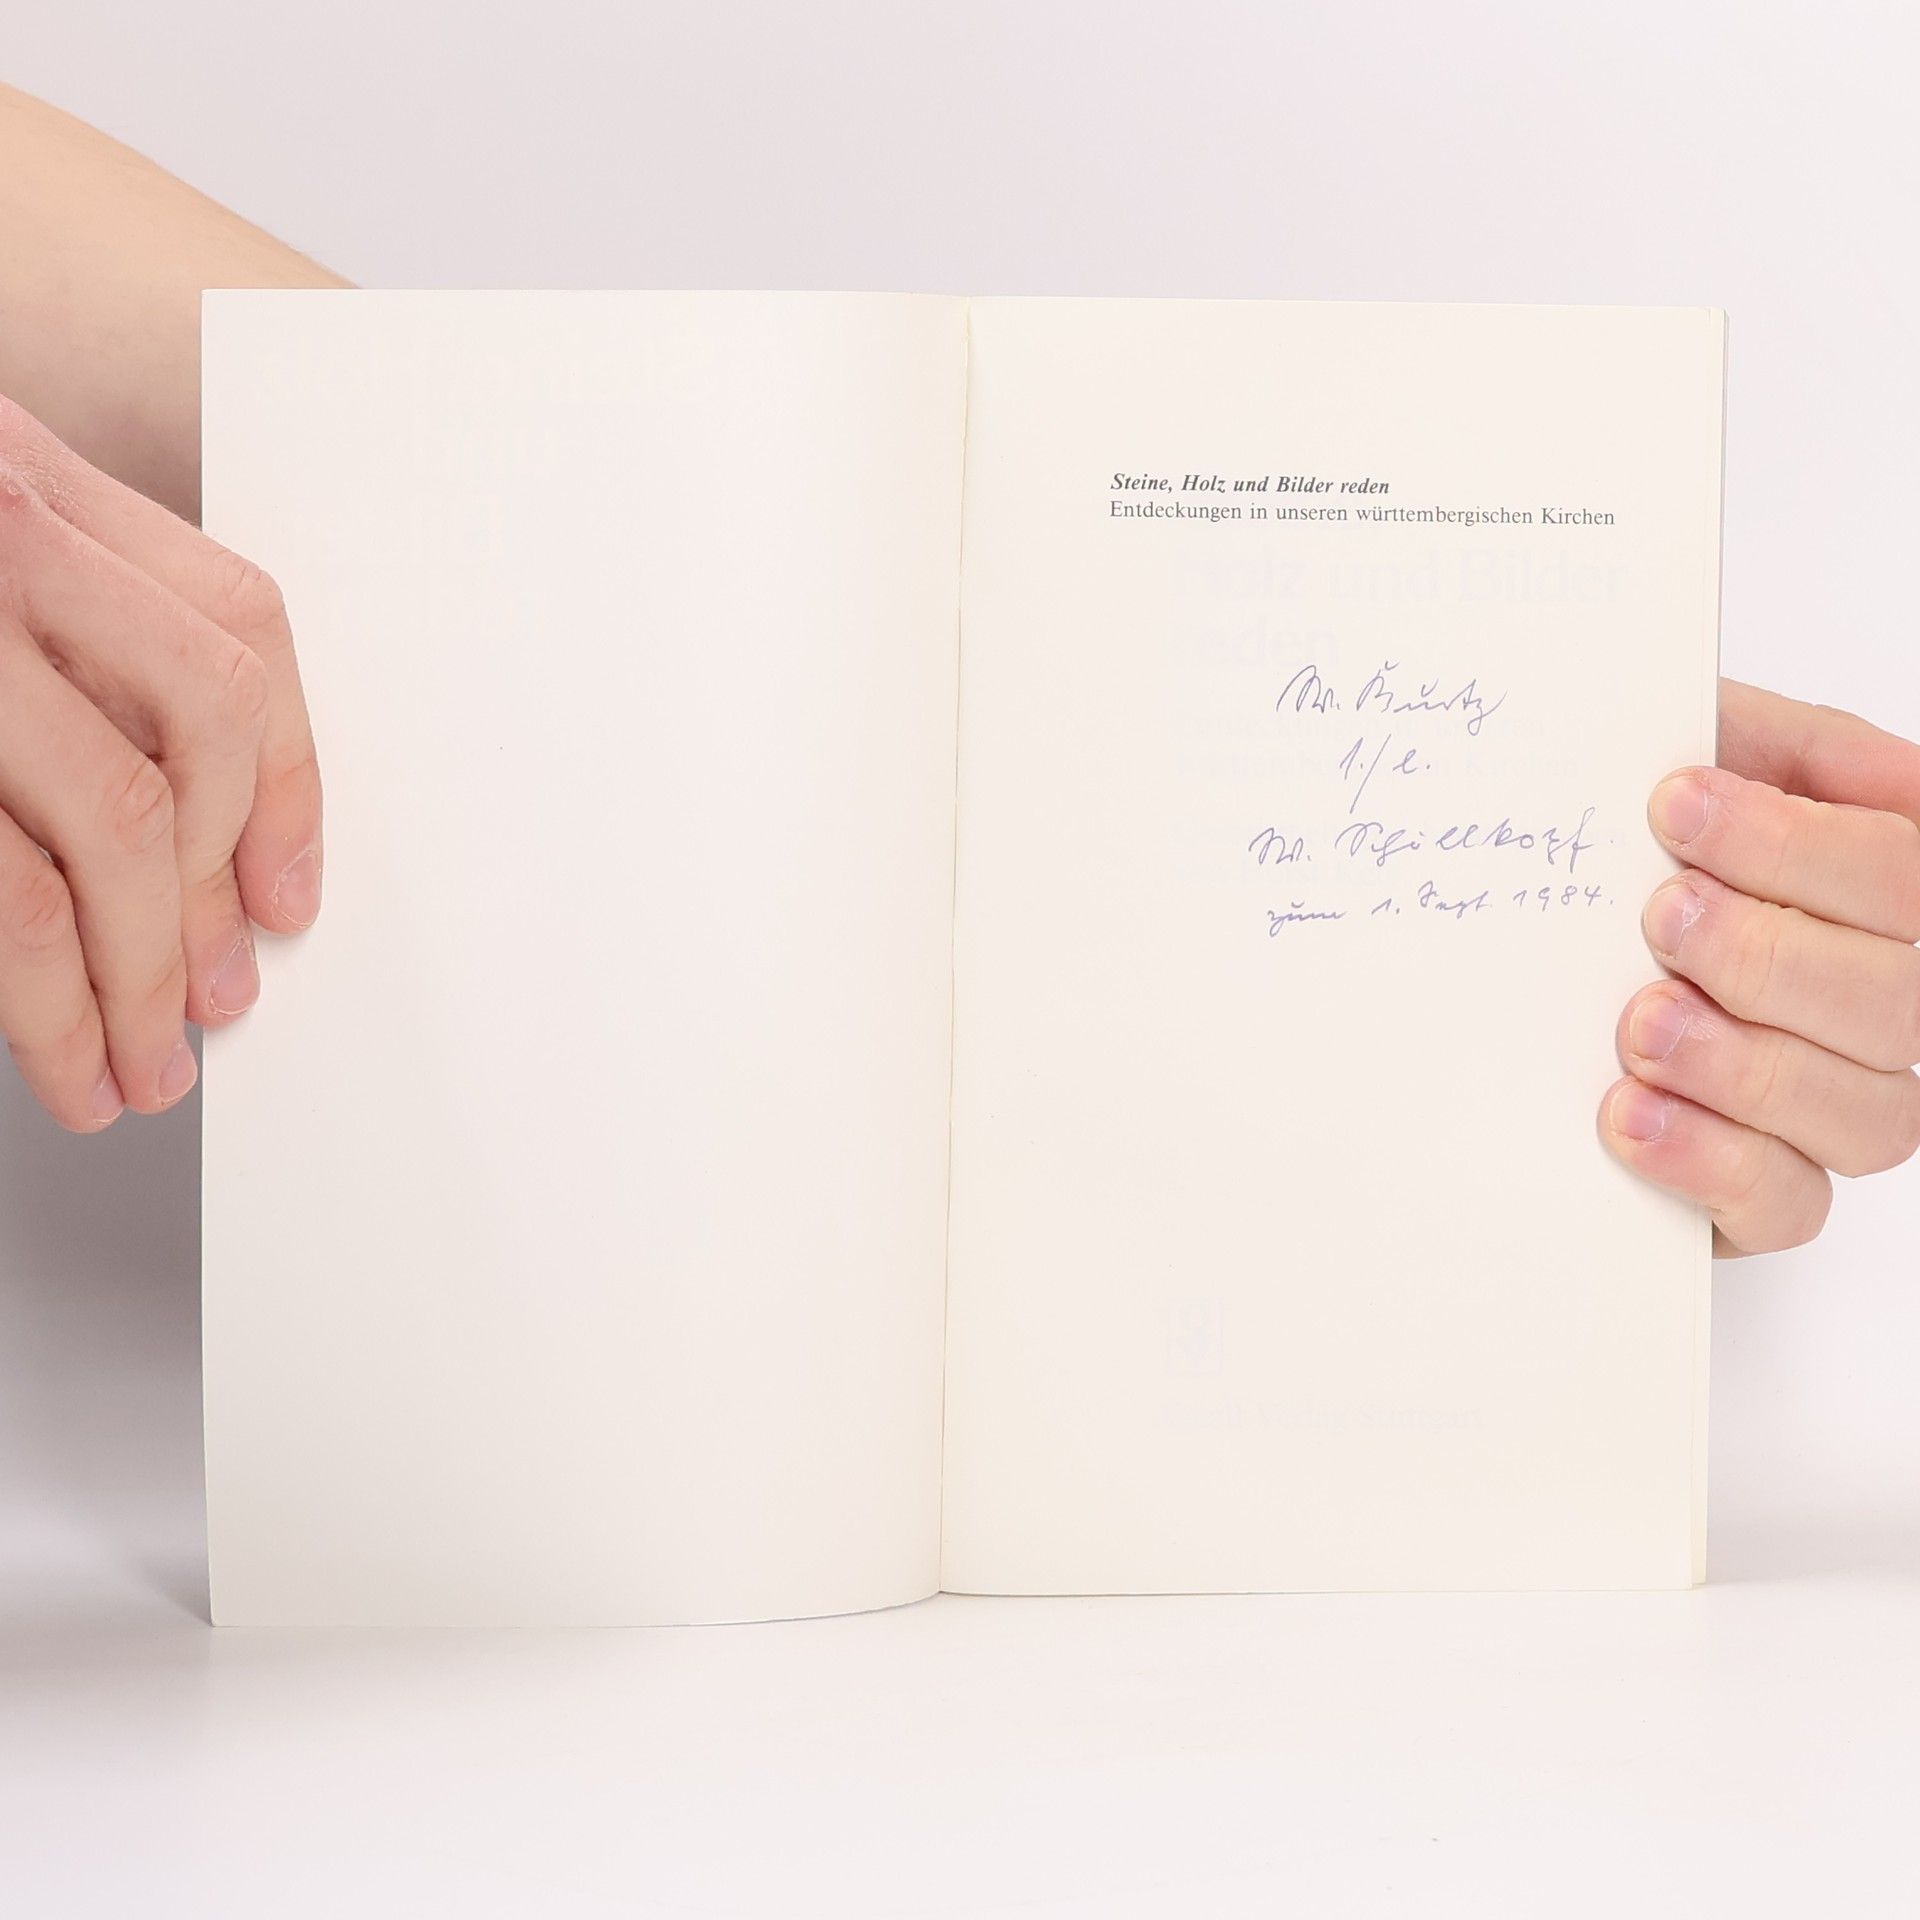 Steine, Holz und Bilder reden
Entdeckungen in unseren württembergischen Kirchen
Holz und Bilder
reden
W. Kurtz
s./l.
W. Schüllkopf.
zum 1. Sept. 1984.